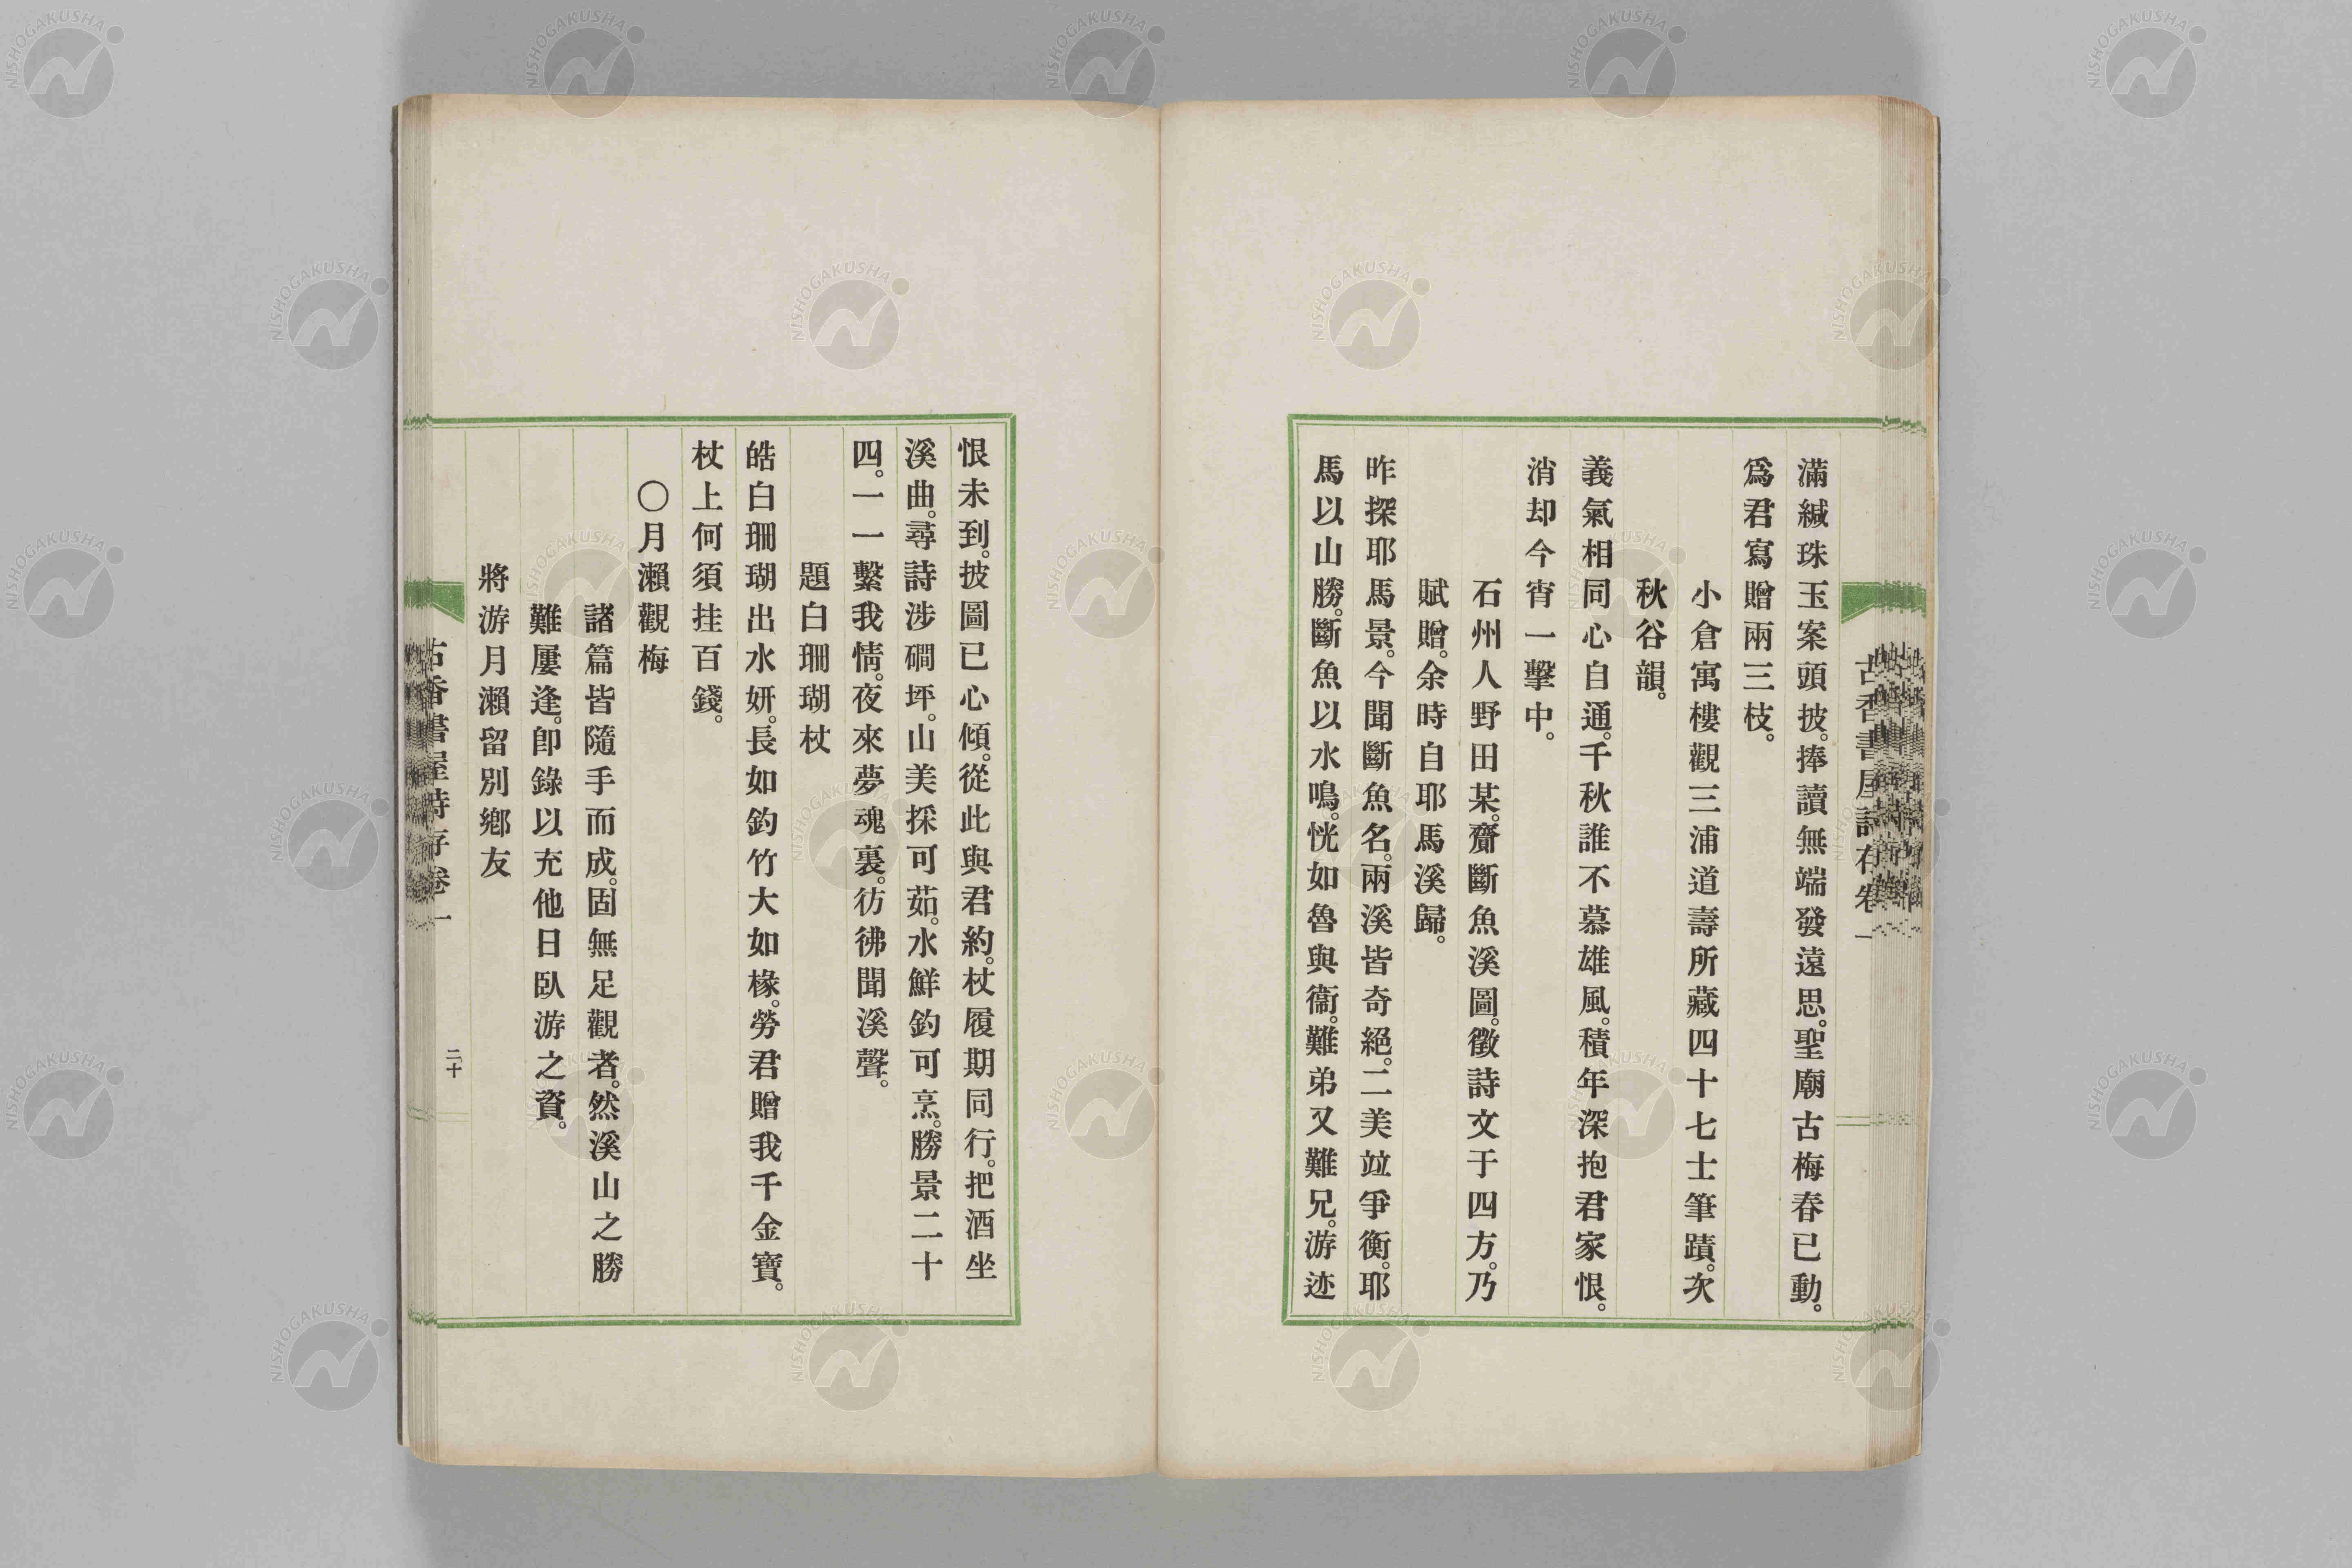 古香書屋詩存卷一
滿緘珠玉案頭披。捧讀無端發遠思。聖廟古梅春已動。
爲君寫贈兩三枝。
小倉寓樓觀三浦道壽所藏四十七士筆蹟。次
秋谷韻。
義氣相同心自通。千秋誰不慕雄風。積年深抱君家恨。
消却今宵一擊中。
石州人野田某。齎斷魚溪圖。徵詩文于四方。乃
賦贈。余時自耶馬溪歸。
昨探耶馬景。今聞斷魚名。兩溪皆奇絕。二美竝爭衡。耶
馬以山勝。斷魚以水鳴。恍如魯與衞。難弟又難兄。游迹
恨未到。披圖已心傾。從此與君約。杖履期同行。把酒坐
溪曲。尋詩涉磵坪。山美採可茹。水鮮釣可烹。勝景二十
四。一一繫我情。夜來夢魂裏。彷彿聞溪聲。
題白珊瑚杖
皓白珊瑚出水妍。長如釣竹大如椽。勞君贈我千金寶。
杖上何須挂百錢。
〇月瀨觀梅
諸篇皆隨手而成。固無足觀者。然溪山之勝
難屢逢。卽錄以充他日臥游之資。
將游月瀨留別鄉友
古香書屋詩存卷一
二十
NISHOGAKUSHA